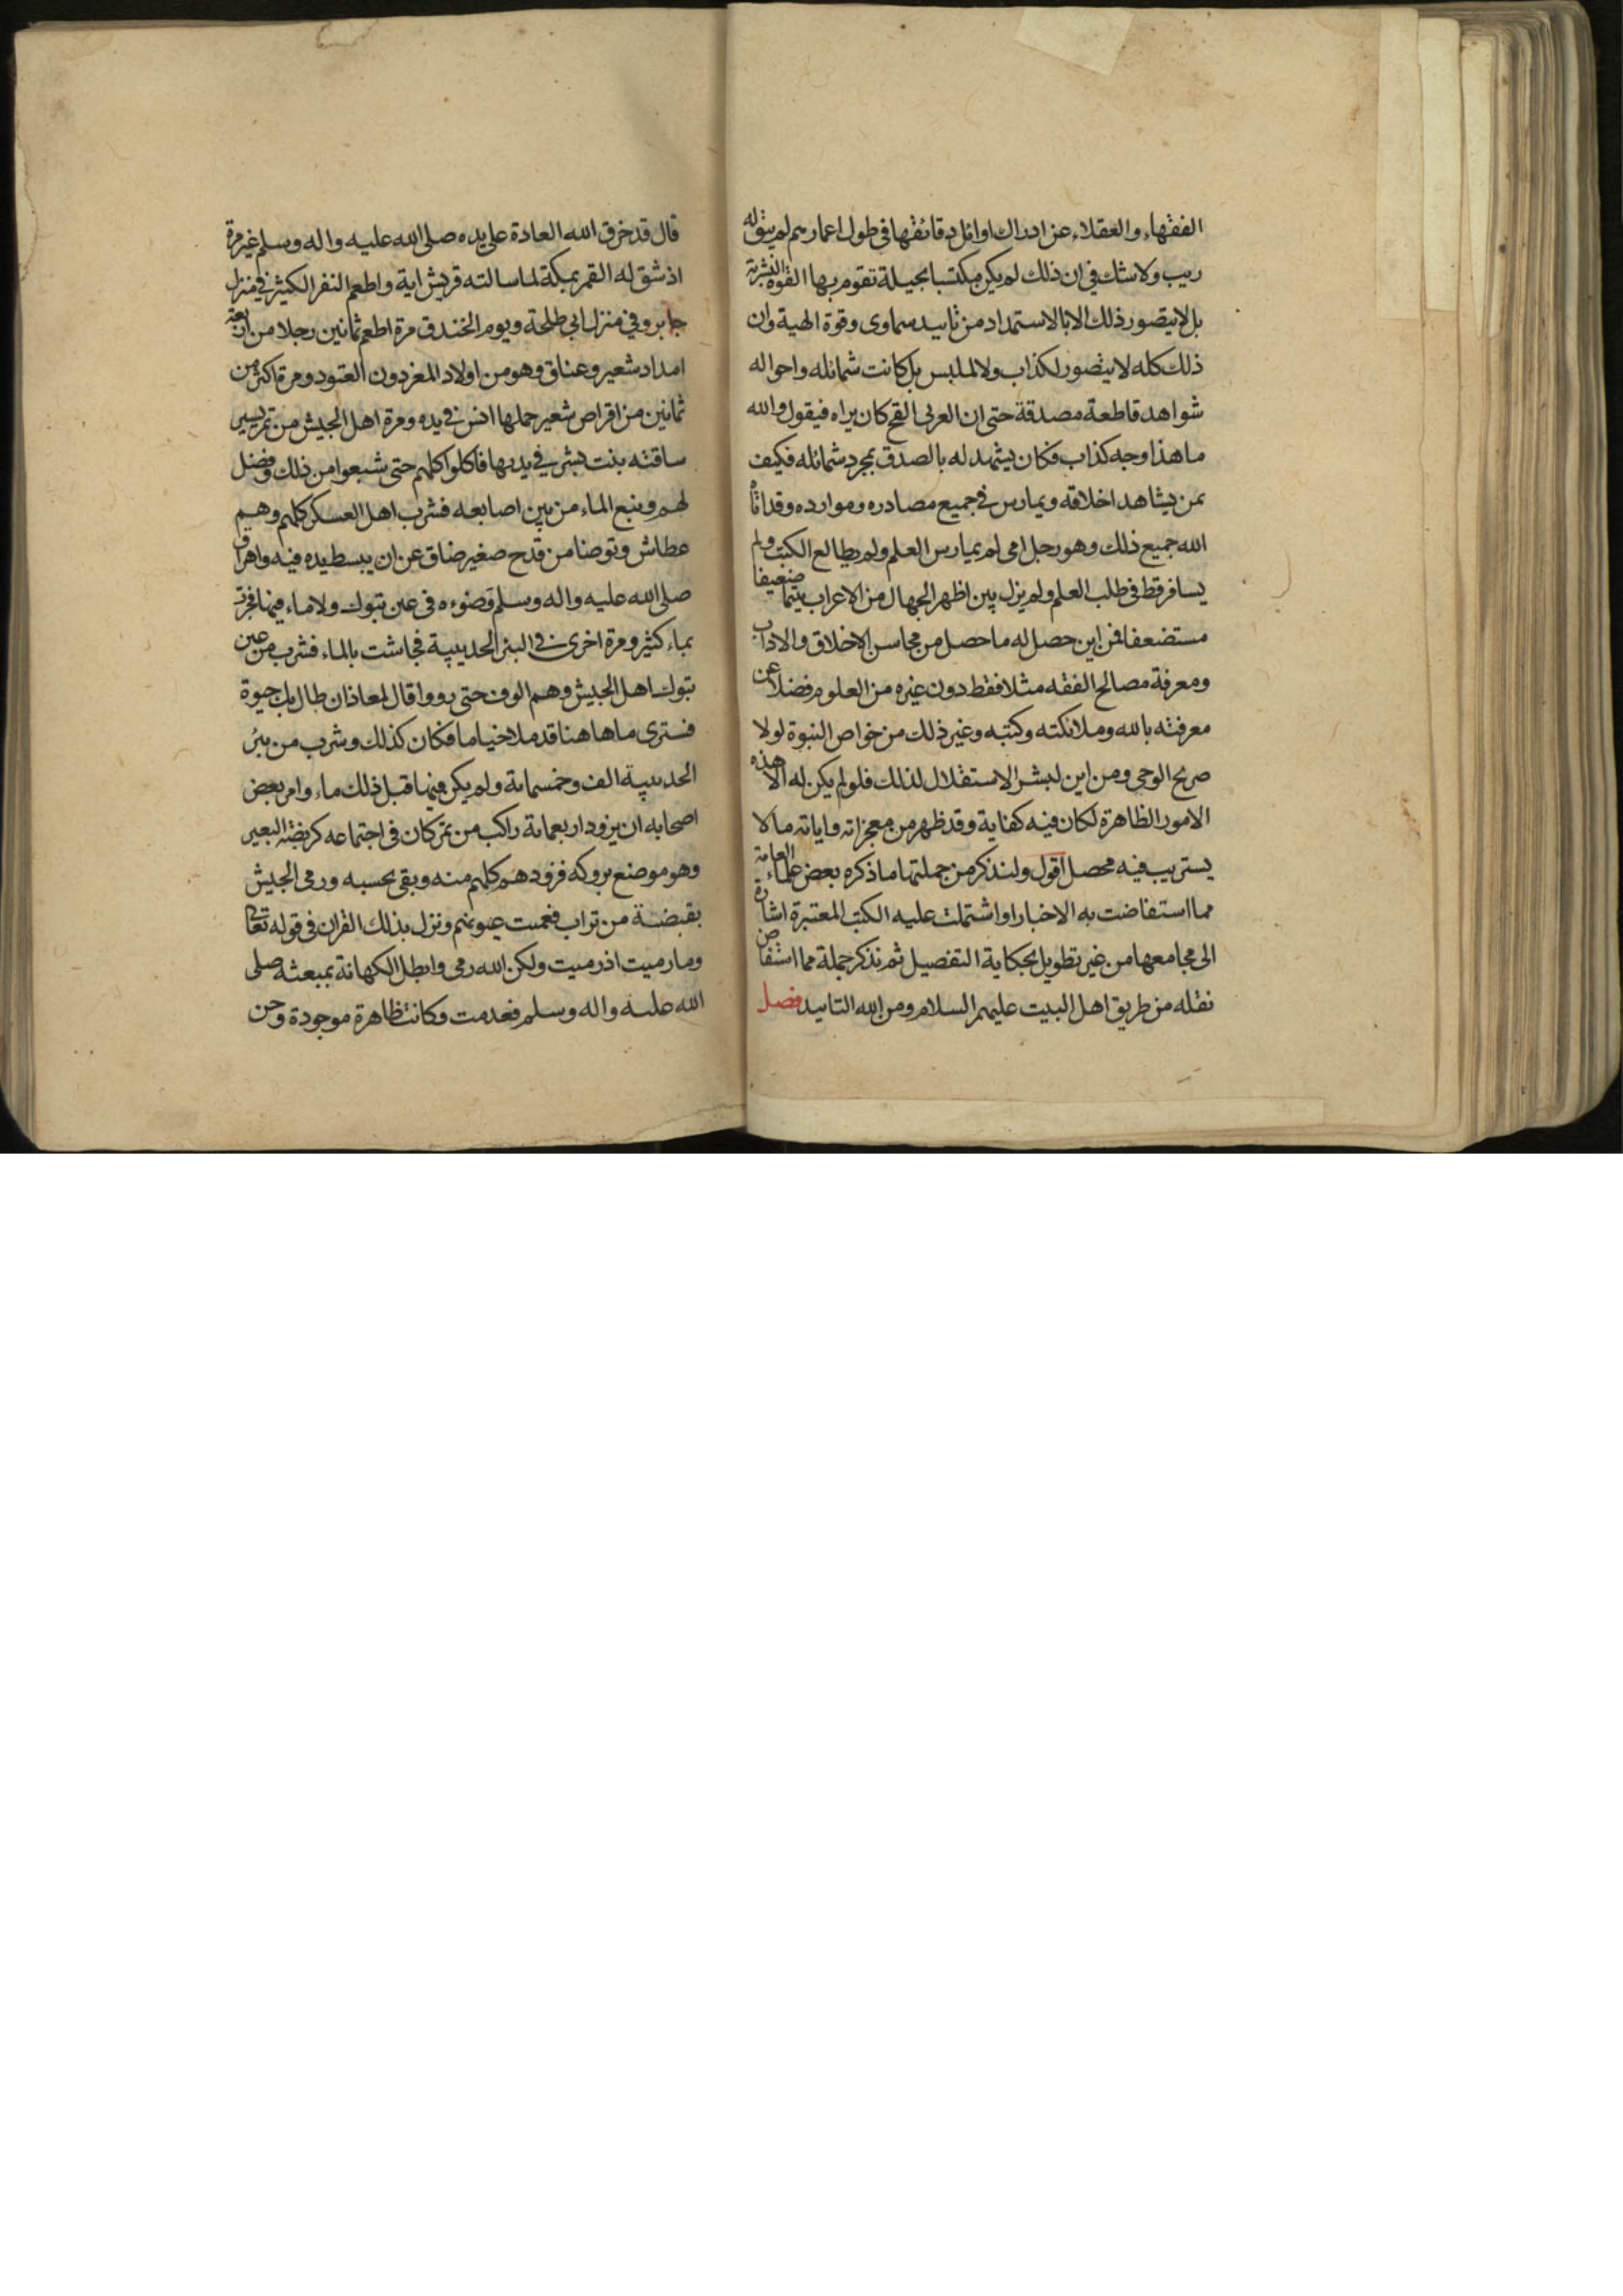 الفقهاء والعقلاء عن ادراك اوائل دقائقها فى طول اعمارهم لم يبق له
ريب ولا شك فى ان ذلك لم يكن مكتسبا بحيلة تقوم بها القوة البشرية
بل لا يتصور ذلك الا بالاستمداد من تاييد سماوى وقوة الهية وان
ذلك كله لا يتصور لكذاب ولا لملبس بل كانت شمائله واحواله
شواهد قاطعة مصدقة حتى ان العربى القح كان يراه فيقول والله
ما هذا وجه كذاب فكان يشهد له بالصدق بمجرد شمائله فكيف
بمن يشاهد اخلاقه ويمارس فى جميع مصادره وموارده وقد اتاه
الله جميع ذلك وهو رجل امى لم يمارس العلم ولم يطالع الكتب ولم
يسافر قط فى طلب العلم ولم يزل بين اظهر الجهال من الاعراب يتيما ضعيفا
مستضعفا فمن اين حصل له ما حصل من محاسن الاخلاق والاداب
ومعرفة مصالح الفقه مثلا فقط دون غيره من العلوم فضلا عن
معرفته بالله وملائكته وكتبه وغير ذلك من خواص النبوة لولا
صريح الوحى ومن اين لبشر الاستقلال لذلك فلو لم يكن له الا هذه
الامور الظاهرة لكان فيه كفاية وقد ظهر من معجزاته واياته ما لا
يستريب فيه محصل اقول ولنذكر من جملتها ما ذكره بعض علماء العامة
مما استفاضت به الاخبار او اشتملت عليه الكتب المعتبرة اشارة
الى مجامعها من غير تطويل بحكاية التفصيل ثم نذكر جملة مما استفاض
نقله من طريق اهل البيت عليهم السلام ومن الله التاييد فصل
قال قد خرق الله العادة على يده صلى الله عليه واله وسلم غير مرة
اذ شق له القمر بمكة لما سالته قريش اية واطعم النفر الكثير فى منزل
جابر وفى منزل ابى طلحة ويوم الخندق مرة اطعم ثمانين رجلا من اربعة
امداد شعير وعناق وهو من اولاد المعز دون العتود ومرة اكثر من
ثمانين من اقراص شعير حملها انس فى يده ومرة اهل الجيش من تمر يسير
ساقته بنت بشر فى يديها فاكلوا كلهم حتى شبعوا من ذلك وفضل
لهم ونبع الماء من بين اصابعه فشرب اهل العسكر كلهم وهم
عطاش وتوضا من قدح صغير ضاق عن ان يبسط يده فيه واهراق
صلى الله عليه واله وسلم وضوءه فى عين تبوك ولا ماء فيها فجرت
بماء كثير ومرة اخرى فى البئر الحديبية فجاشت بالماء فشرب من عين
تبوك اهل الجيش وهم الوف حتى رووا قال لمعاذ ان طال بك حيوة
فسترى ما هاهنا قد ملا خياما فكان كذلك وشرب من بئر
الحديبية الف وخمسماية ولم يكن فيها قبل ذلك ماء وامر بعض
اصحابه ان يزود اربعماية راكب من تمر كان فى اجتماعه كربضة البعير
وهو موضع بروكه فزودهم كلهم منه وبقى بحسبه ورمى الجيش
بقبضة من تراب فعميت عيونهم ونزل بذلك القران فى قوله تعالى
وما رميت اذ رميت ولكن الله رمى وابطل الكهانة بمبعثه صلى
الله عليه واله وسلم فعدمت وكانت ظاهرة موجودة وحن